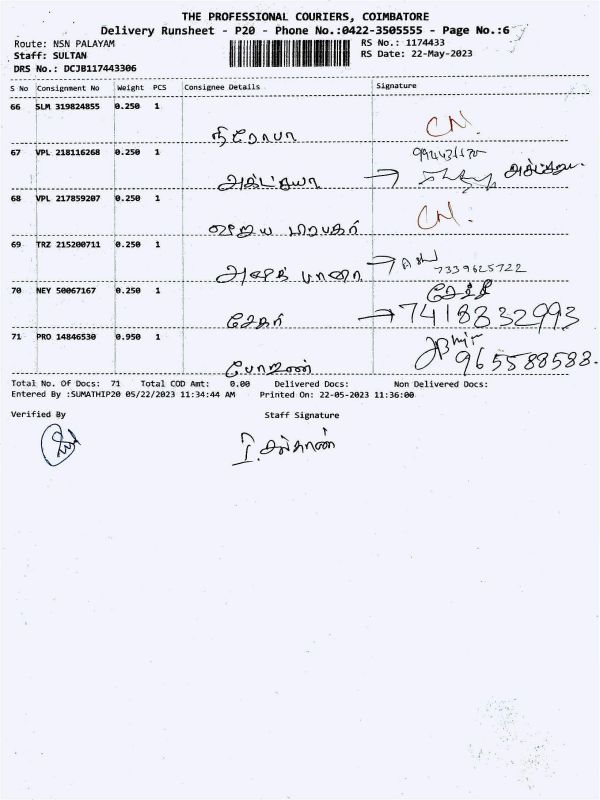 THE PROFESSIONAL COURIERS, COIMBATORE
Delivery Runsheet - P20 - Phone No.:0422-3505555 - Page No.:6
Route: NSN PALAYAM
RS No.: 1174433
Staff: SULTAN
RS Date: 22-May-2023
DRS No.: DCJB117443306
S No Consignment No Weight PCS Consignee Details Signature
66 SLM 319824855 0.250 1
நிரோபா CN.
67 VPL 218116268 0.250 1
68 VPL 217859207 0.250 1
CN.
69 TRZ 215200711 0.250 1
7339625722
70 NEY 50067167 0.250 1
சேகர் 7418832993
71 PRO 14846530 0.950 1
965588588.
Total No. Of Docs: 71 Total COD Amt: 0.00 Delivered Docs: Non Delivered Docs:
Entered By :SUMATHIP20 05/22/2023 11:34:44 AM Printed On: 22-05-2023 11:36:00
Verified By Staff Signature